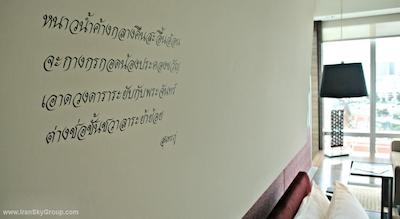 หนาวน้ำค้างกลางคืนสะอื้นอ้อน
จะกางกรกอดน้องประคองขวัญ
เอาดวงดาราระยับกับพระจันทร์
ต่างช่อชั้นชวาลาระย้าย้อย
สุนทรภู่
www.IranSkyGroup.com